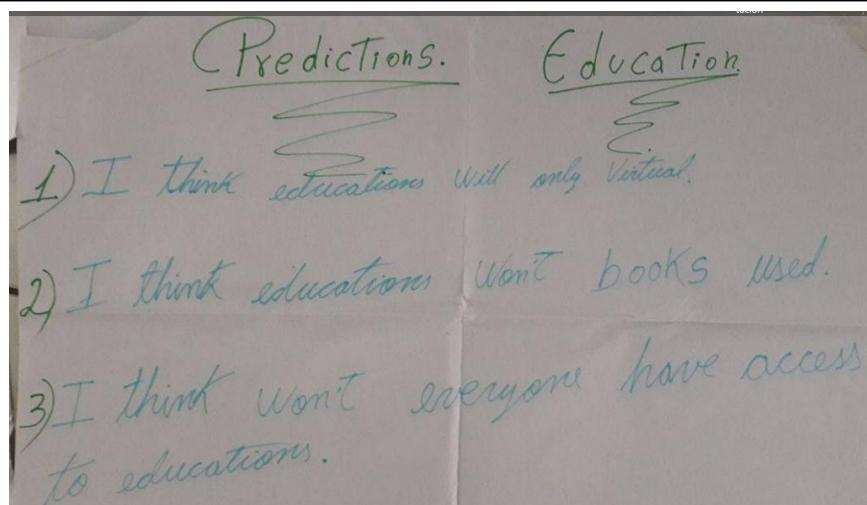 Predictions. Education.
1) I think educations will only Virtual.
2) I think educations won't books used.
3) I think won't everyone have access
to educations.